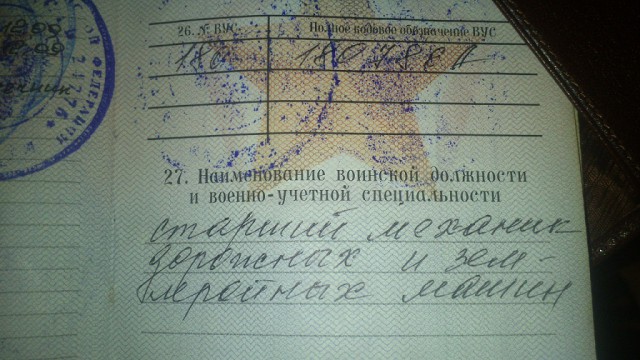 26. № ВУС
Полное кодовое обозначение ВУС
180
180788А
27. Наименование воинской должности
и военно-учетной специальности
старший механик
дорожных и зем-
леройных машин